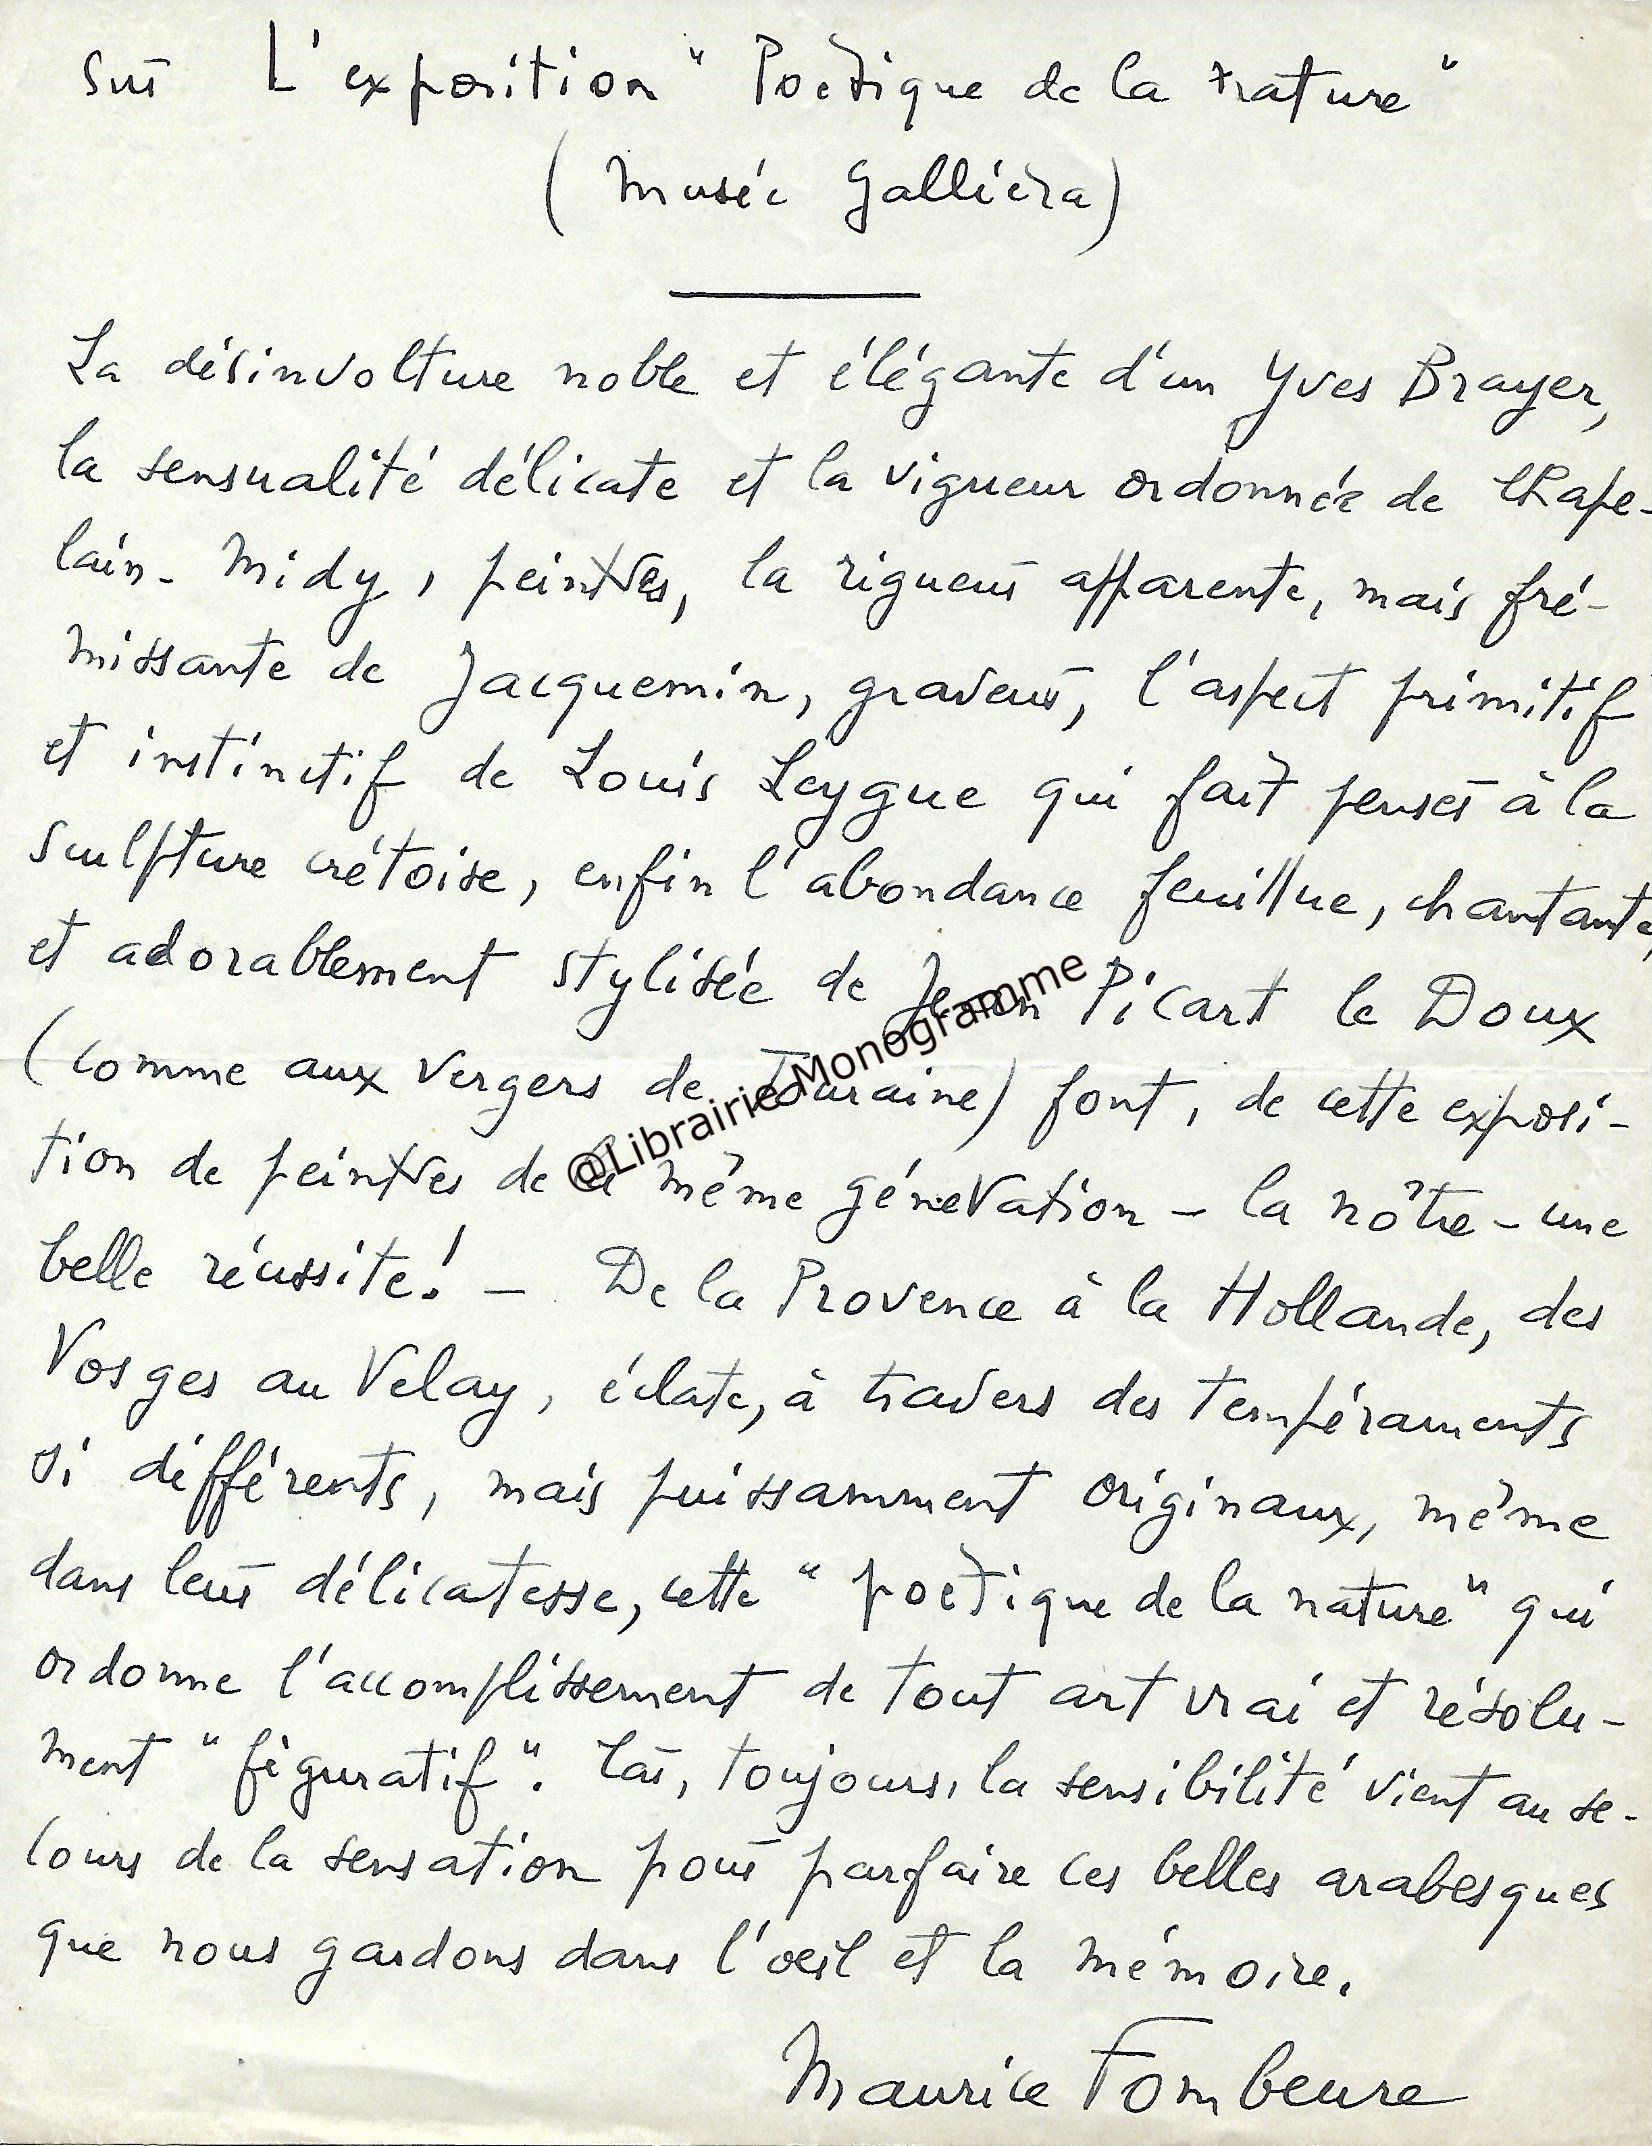 sur L'exposition "Poétique de la nature"
(Musée Galliéra)
La désinvolture noble et élégante d'un Yves Brayer,
la sensualité délicate et la vigueur ordonnée de Chape-
lain-Midy, peintres, la rigueur apparente, mais fré-
missante de Jacquemin, graveur, l'aspect primitif
et instinctif de Louis Leygue qui fait penser à la
sculpture crétoise, enfin l'abondance feuillue, chantante,
et adorablement stylisée de Jean Picart le Doux
(comme aux vergers de Touraine) font, de cette exposi-
tion de peintres de la même génération - la nôtre - une
belle réussite! - De la Provence à la Hollande, des
Vosges au Velay, éclate, à travers des tempéraments
si différents, mais puissamment originaux, même
dans leur délicatesse, cette "poétique de la nature" qui
ordonne l'accomplissement de tout art vrai et résolu-
ment "figuratif". Car, toujours, la sensibilité vient au se-
cours de la sensation pour parfaire ces belles arabesques
que nous gardons dans l'oeil et la mémoire.
Maurice Fombeure
@Librairie Monogramme